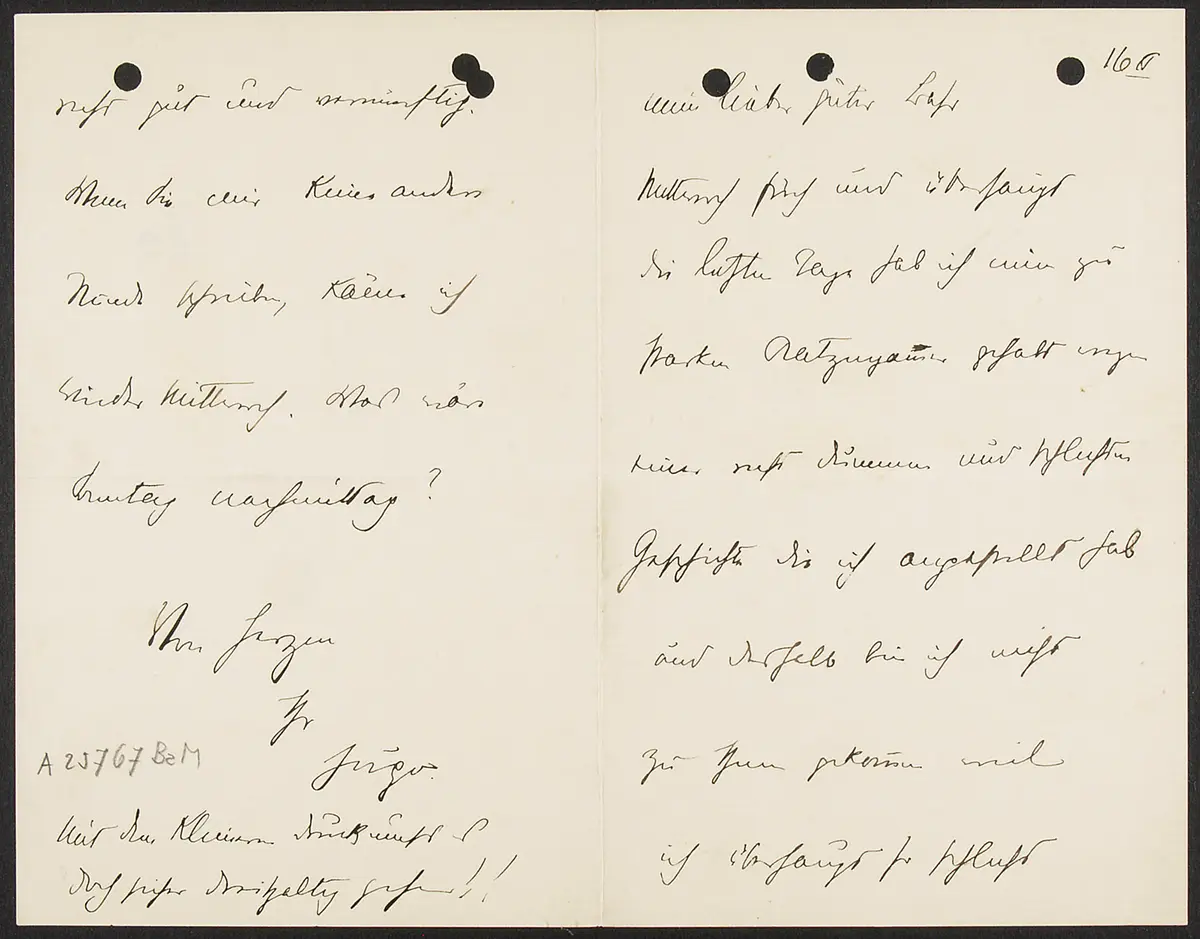 16
mein lieber guter Bahr
Mittwoch früh und überhaupt
die letzten Tage hab ich einen zu
starken Katzenjammer gehabt wegen
einer recht dummen und schlechten
Geschichte die ich angestellt hab
und deshalb bin ich nicht
zu Ihnen gekommen weil
ich überhaupt so schlecht
recht gut und vernünftig.
Wenn Sie mir keine andere
Stunde schreiben, käme ich
wieder Mittwoch. Was wäre
Sonntag nachmittag?
Von Herzen
Ihr
Hugo.
A 25767 BaM
Mit dem kleineren Druck müsst es
doch sicher dreispaltig gehen!!